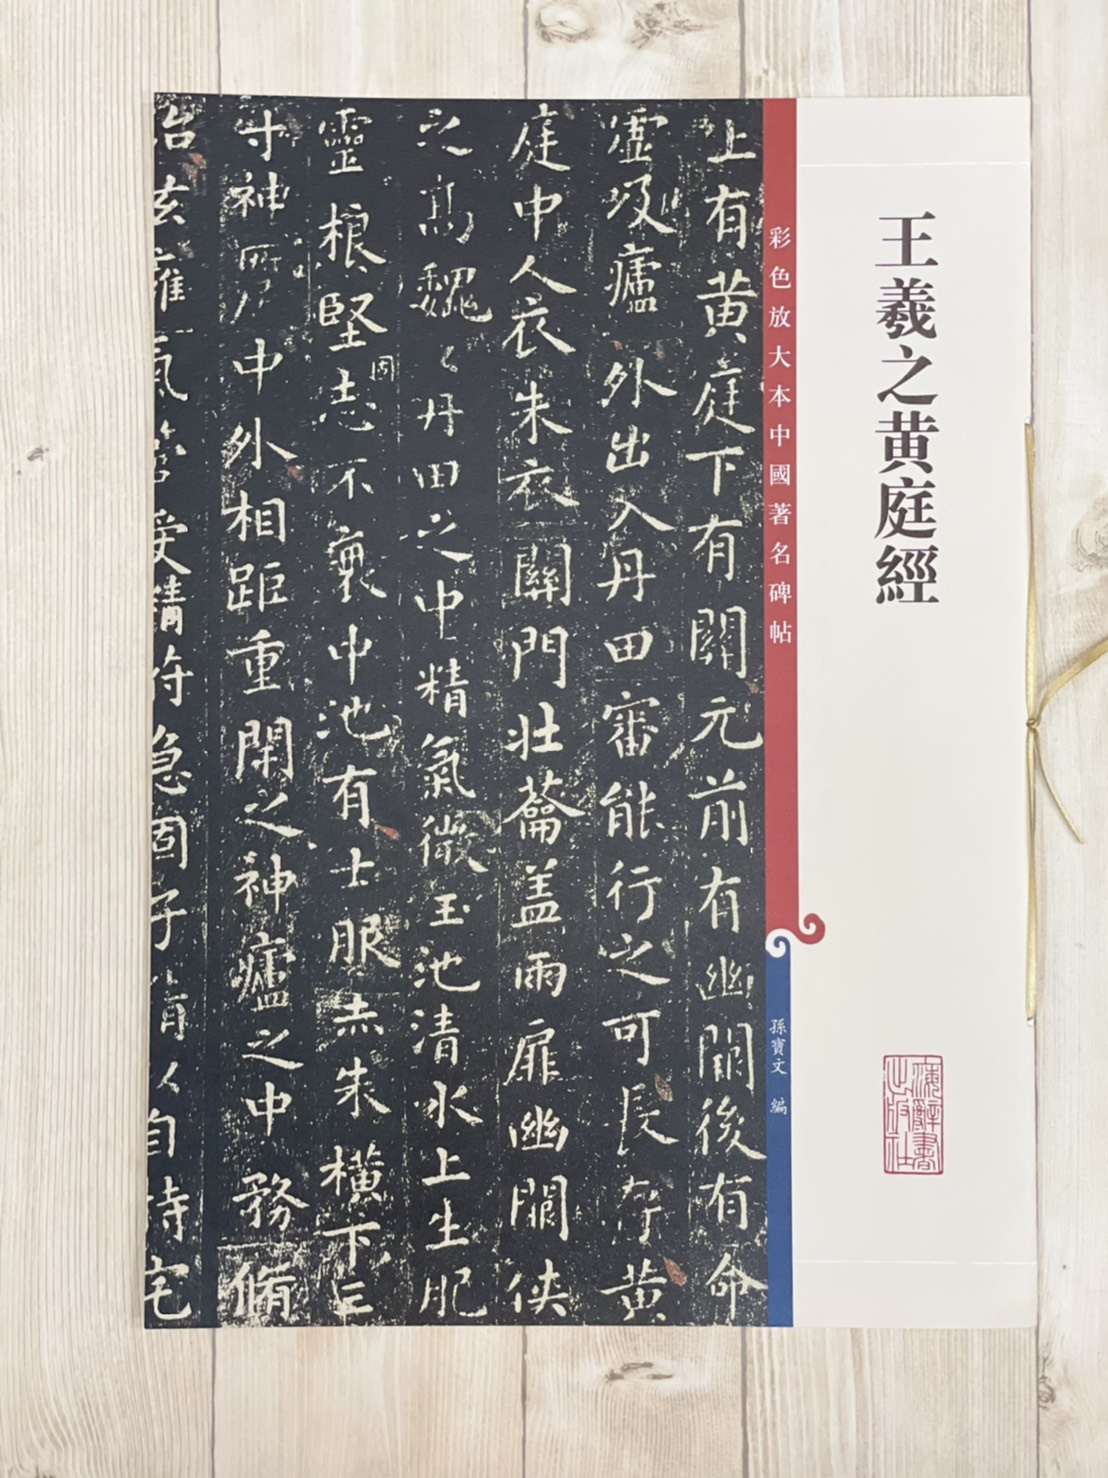 王羲之黄庭經
彩色放大本中國著名碑帖
孫寶文 編
上海辭書出版社
上有黄庭下有關元前有幽闕後有命
嘘吸廬外出入丹田審能行之可長存黄
庭中人衣朱衣關門壮蘥盖兩扉幽闕侠
之高魏〻丹田之中精氣微玉池清水上生肥
靈根堅固志不衰中池有士服赤朱横下三
寸神所居中外相距重閉之神廬之中務脩
治玄廱氣管受精符急固子精以自持宅